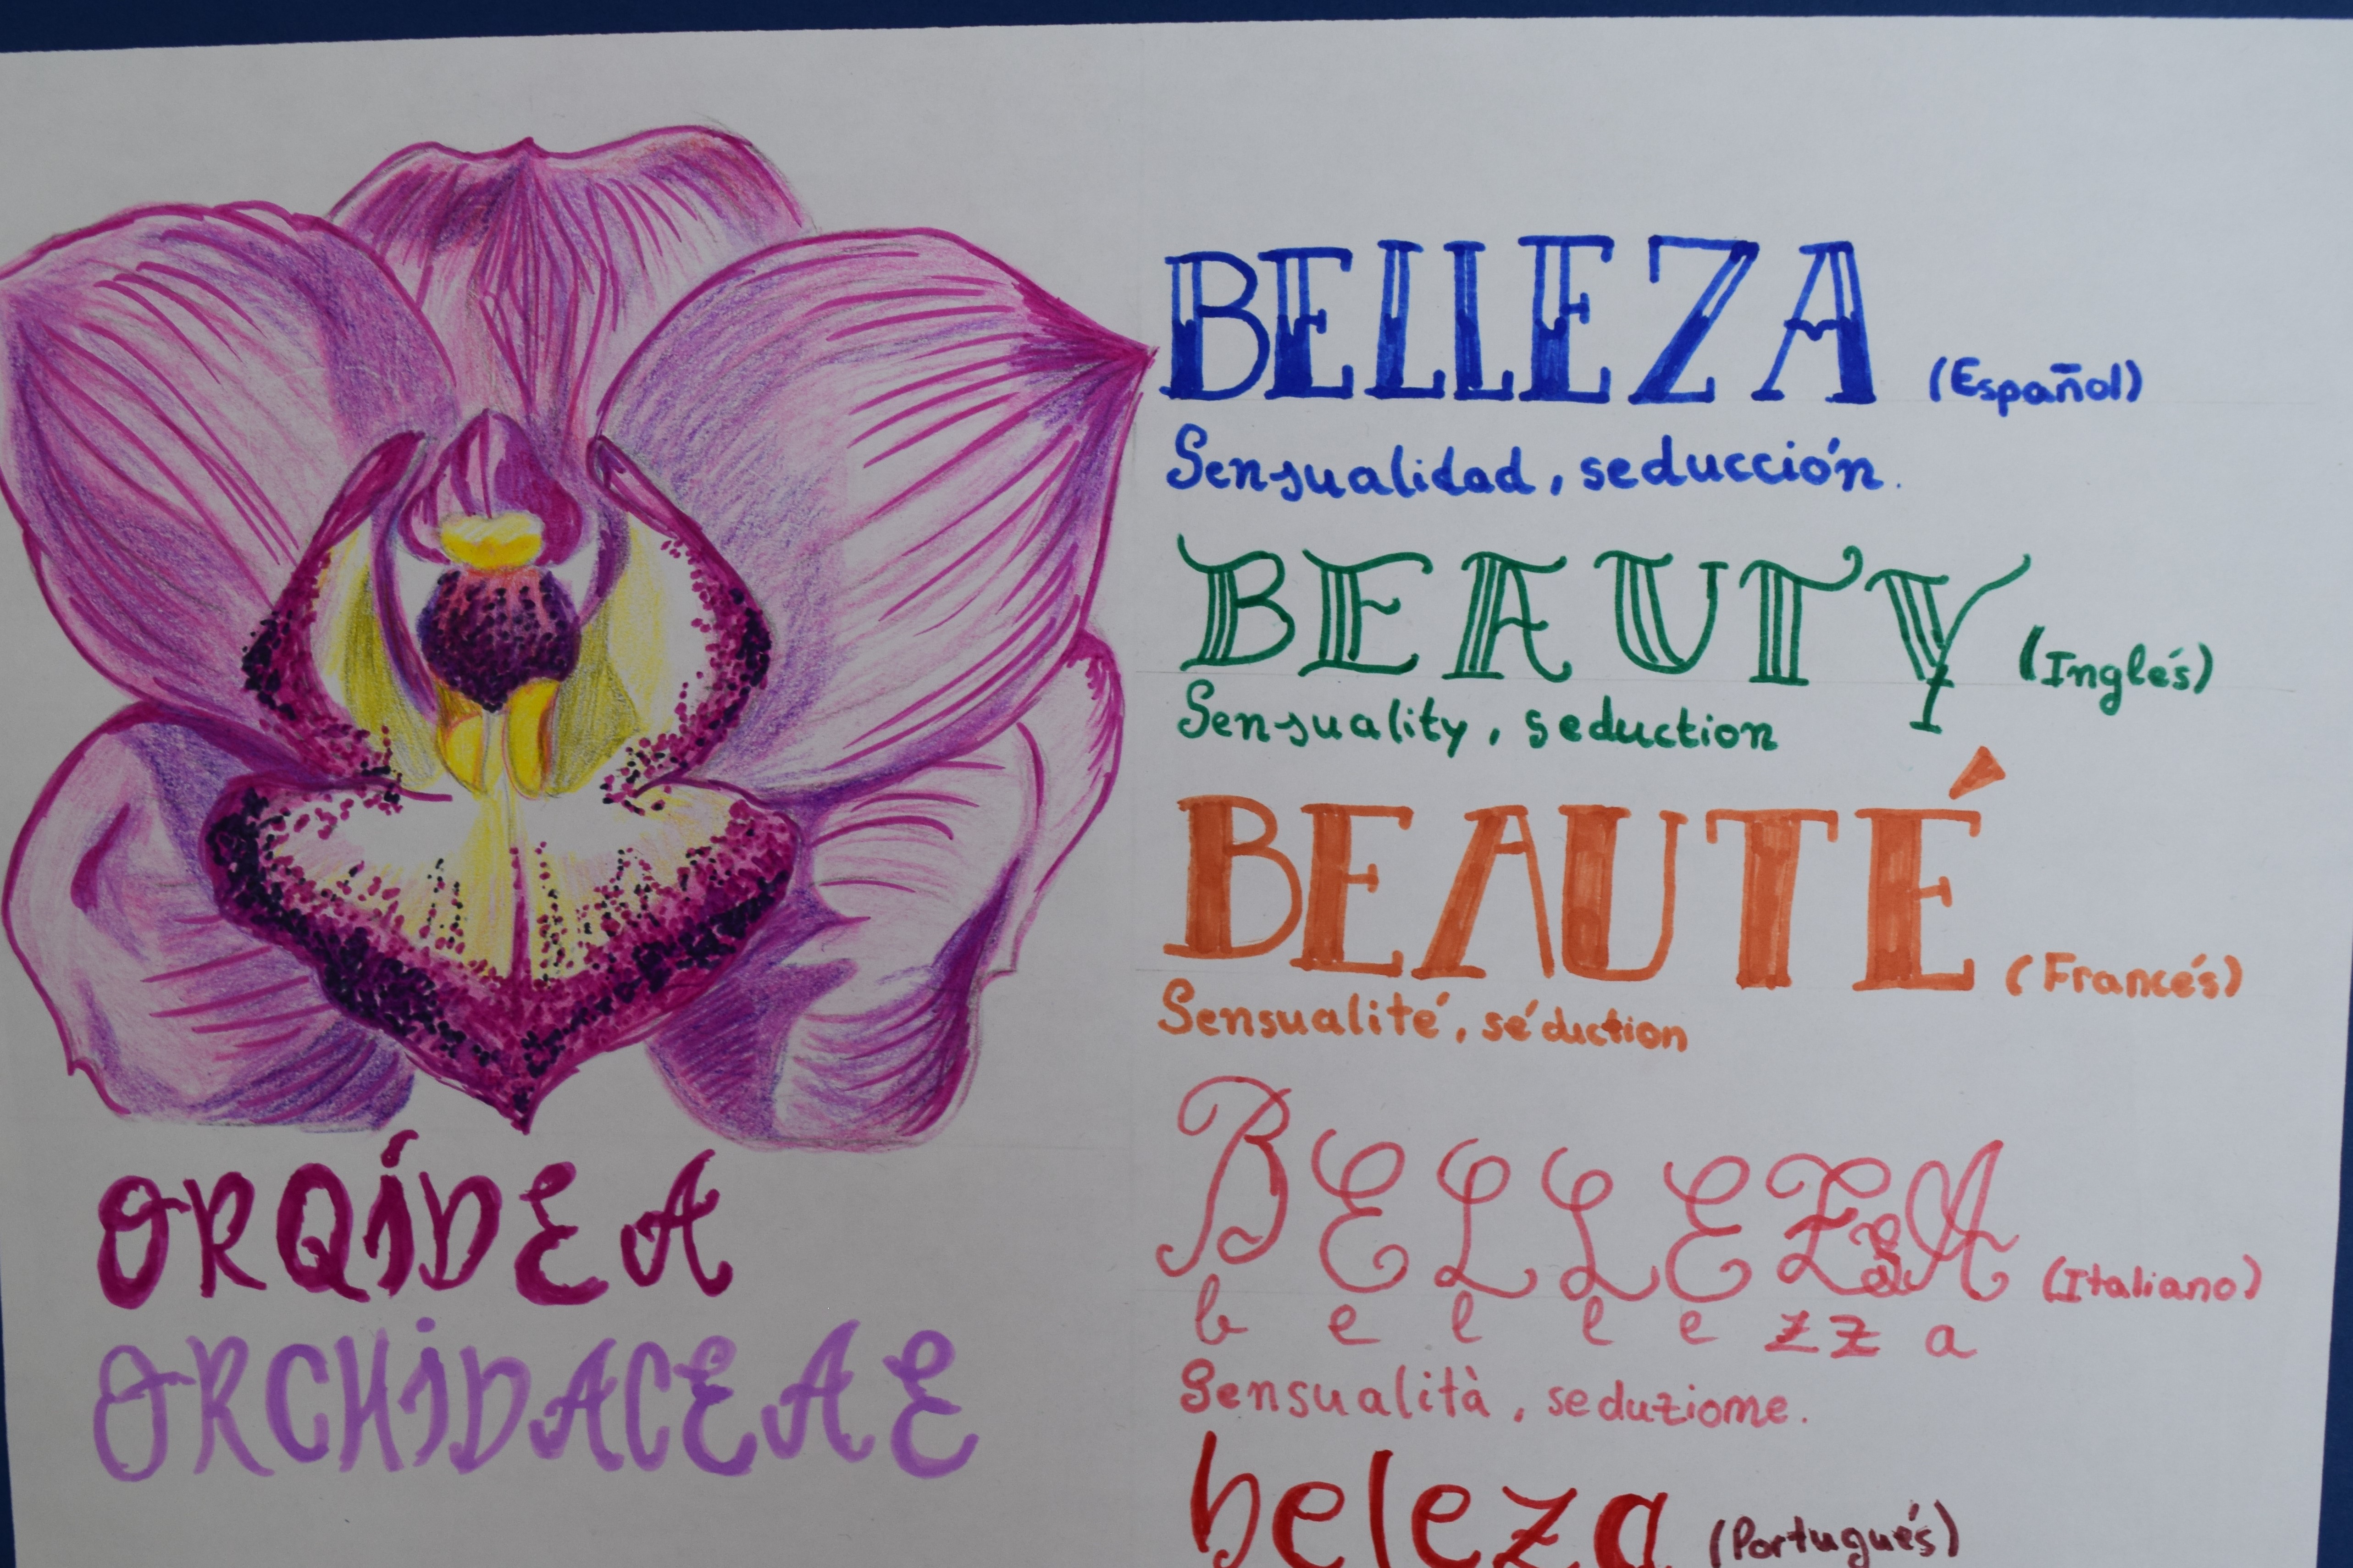 BELLEZA (Español)
Sensualidad, seducción.
BEAUTY (Inglés)
Sensuality, seduction
BEAUTÉ (Francés)
Sensualité, séduction
BELLEZzA (Italiano)
b e l l e zz a
Sensualità, seduziome.
beleza (Portugués)
ORQÍDEA
ORCHIDACEAE